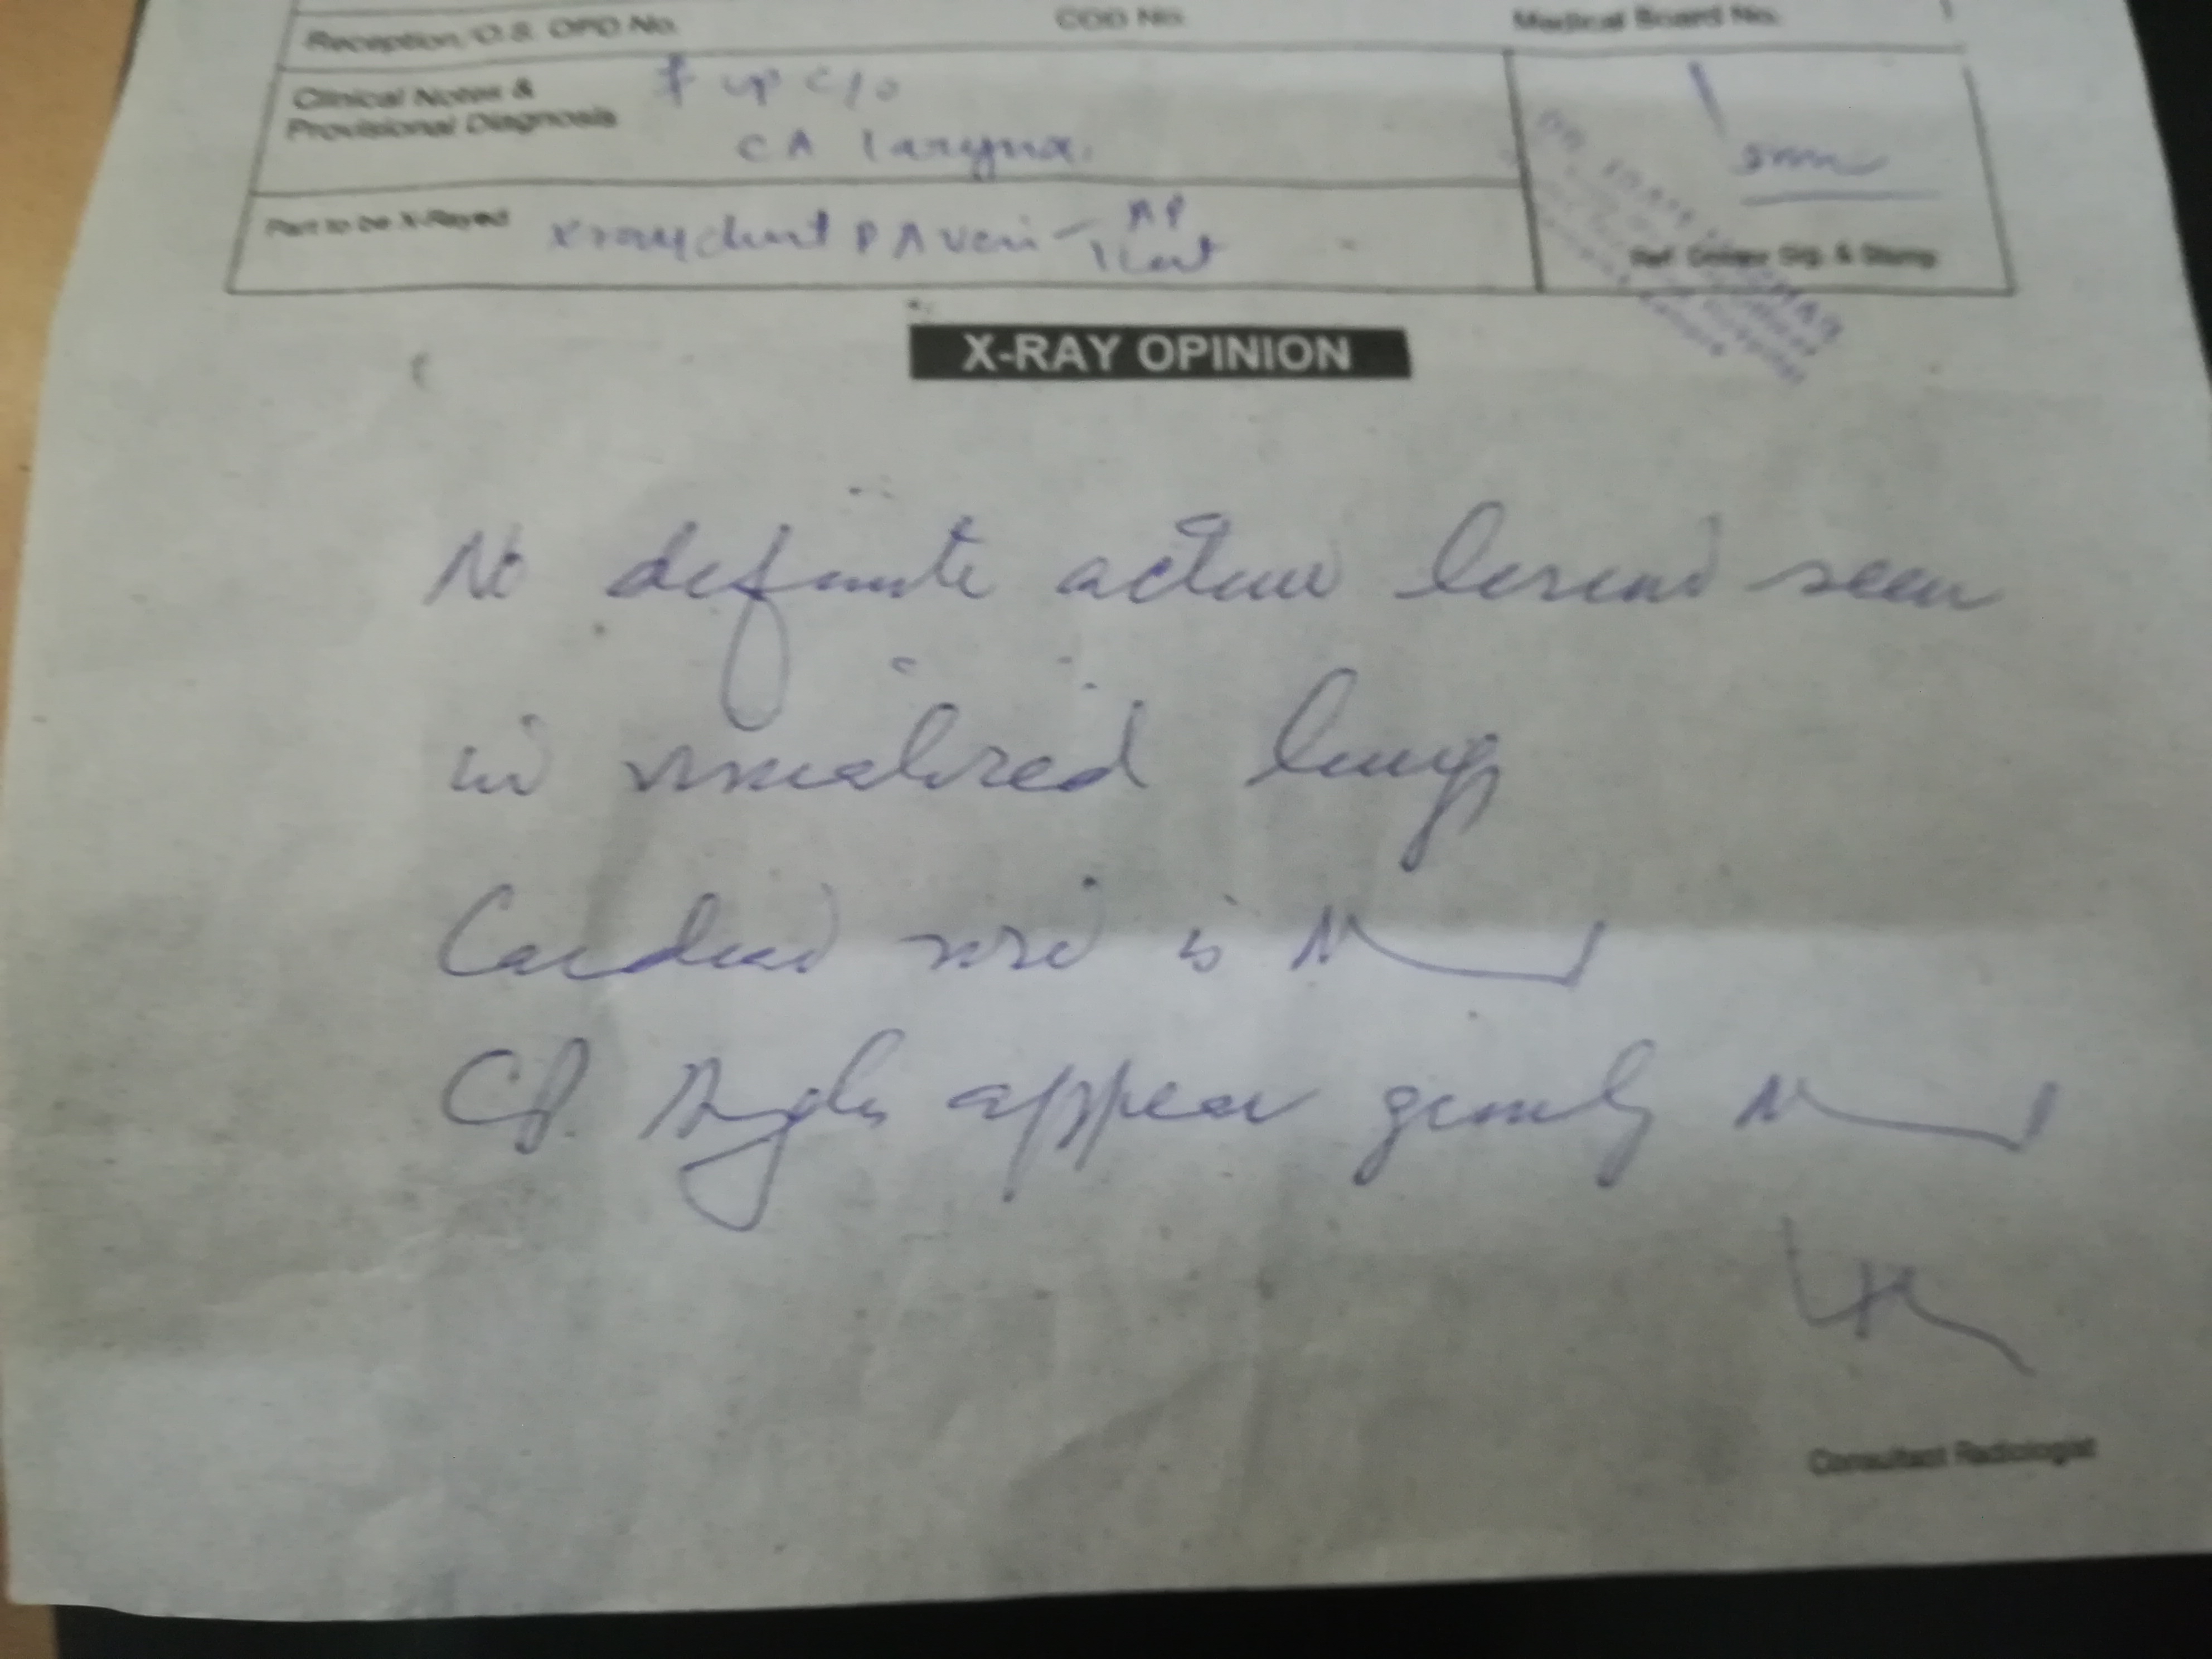 Reception/O.S. OPD No. COD No. Medical Board No.
Clinical Notes & f up c/o
Provisional Diagnosis CA larynx.
Part to be X-Rayed X ray chest PA view AP
Ref. Doctor Sig. & Stamp
X-RAY OPINION
No definite active lesion seen
in visualized lung
Cardiac size is N
CP. Angles appear grossly N
Consultant Radiologist